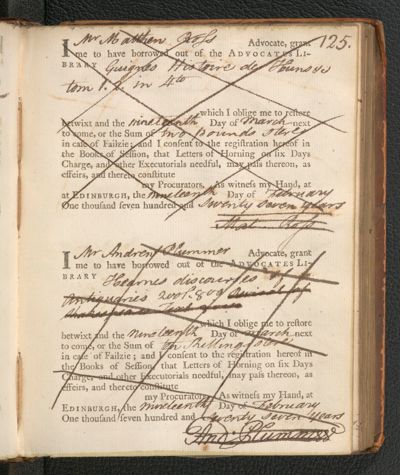 125.
I Mr Matthew Ross Advocate, grant
me to have borrowed out of the ADVOCATES LI-
BRARY Guignes Histoire des Huns &c
tom 1. in 4to
which I oblige me to reſtore
betwixt and the nineteenth Day of March next
to come, or the Sum of two pounds sterg
in caſe of Failzie; and I conſent to the regiſtration hereof in
the Books of Seſſion, that Letters of Horning on ſix Days
Charge, and other Executorials needful, may paſs thereon, as
effeirs, and thereto conſtitute
my Procurators. As witneſs my Hand, at
at EDINBURGH, the nineteenth Day of February
One thouſand ſeven hundred and Seventy Seven years
Mat. Ross
I Mr Andrew Plummer Advocate, grant
me to have borrowed out of the ADVOCATES LI-
BRARY Hearnes discourses
Antiquaries 8vo
which I oblige me to reſtore
betwixt and the nineteenth Day of March next
to come, or the Sum of Shillings
in caſe of Failzie; and I conſent to the regiſtration hereof in
the Books of Seſſion, that Letters of Horning on ſix Days
Charge, and other Executorials needful, may paſs thereon, as
effeirs, and thereto conſtitute
my Procurators. As witneſs my Hand, at
EDINBURGH, the nineteenth Day of February
One thouſand ſeven hundred and Seventy Seven years
And: Plummer